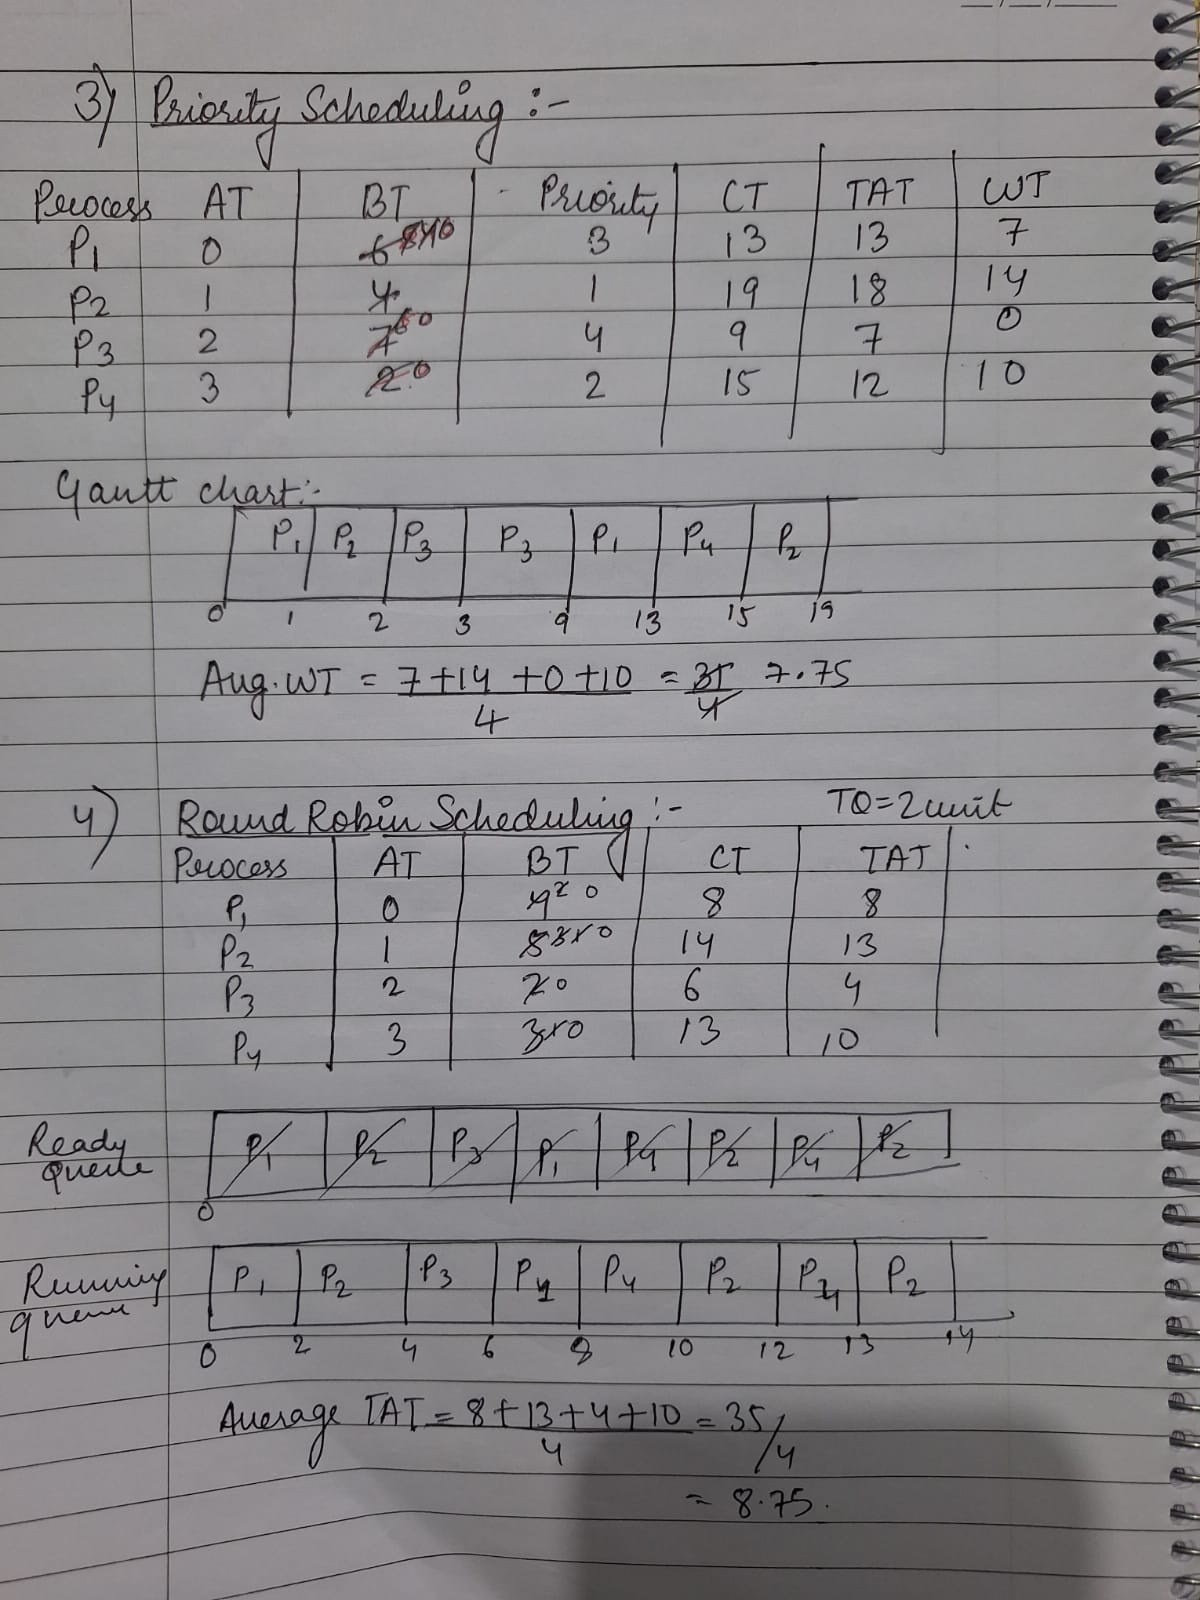 3) Priority Scheduling :-
Process AT BT Priority CT TAT WT
P1 0 6 3 13 13 7
P2 1 4 1 19 18 14
P3 2 7 6 0 4 9 7 0
P4 3 2 0 2 15 12 10
Gantt chart:-
P1 P2 P3 P3 P1 P4 P2
0 1 2 3 9 13 15 19
Aug. WT = 7+14+0+10 = 31 7.75
4 4
4) Round Robin Scheduling :- TQ=2unit
Process AT BT CT TAT
P1 0 4 2 0 8 8
P2 1 5 3 1 0 14 13
P3 2 2 0 6 4
P4 3 3 1 0 13 10
Ready Queue
P1 P2 P3 P1 P4 P2 P4 P2
0
Running queue
P1 P2 P3 P1 P4 P2 P4 P2
0 2 4 6 8 10 12 13 14
Average TAT = 8+13+4+10 = 35/4
4
= 8.75.